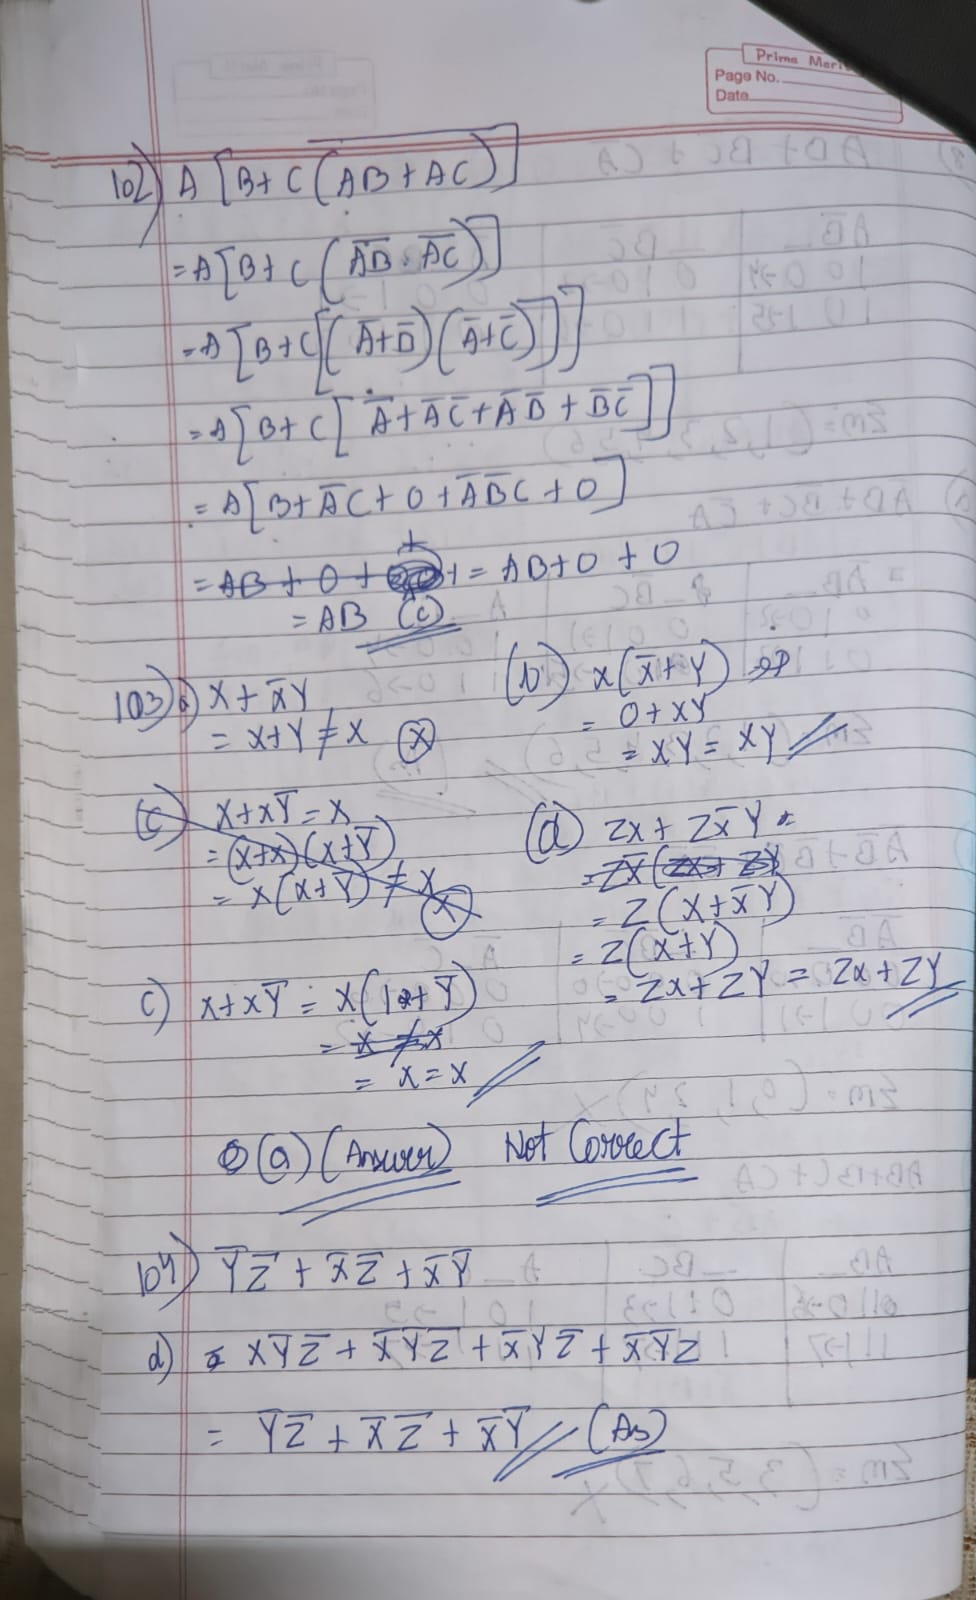 Prime Meri
Page No.
Date
102) A [B+C(\overline{AB+AC})]
= A[B+C(\overline{AB}·\overline{AC})]
= A[B+C[(A̅+B̅)(A̅+C̅)]]
= A[B+C[A̅+A̅C̅+A̅B̅+B̅C̅]]
= A[B+A̅C+0+A̅B̅C+0]
= AB+0+ = AB+0+0
= AB (c)
103) a) X+X̅Y
= X+Y ≠ X (X)
(b) X(X̅+Y)
= 0+XY
= XY = XY
(c) X+XY̅ = X
= (X+X)(X+Y̅)
= X(X+Y̅) ≠ X
(X)
(d) ZX+ZX̅Y =
= ZX̅(ZX+ZY
= Z(X+X̅Y)
= Z(X+Y)
= ZX+ZY = ZX+ZY
c) X+XY̅ = X(1+Y̅)
= X ≠ X
= X=X
(a) (Answer) Not Correct
104) Y̅Z̅+X̅Z̅+X̅Y̅
d) = XY̅Z̅+X̅Y̅Z̅+X̅YZ̅+X̅Y̅Z
= Y̅Z̅+X̅Z̅+X̅Y̅ (As)